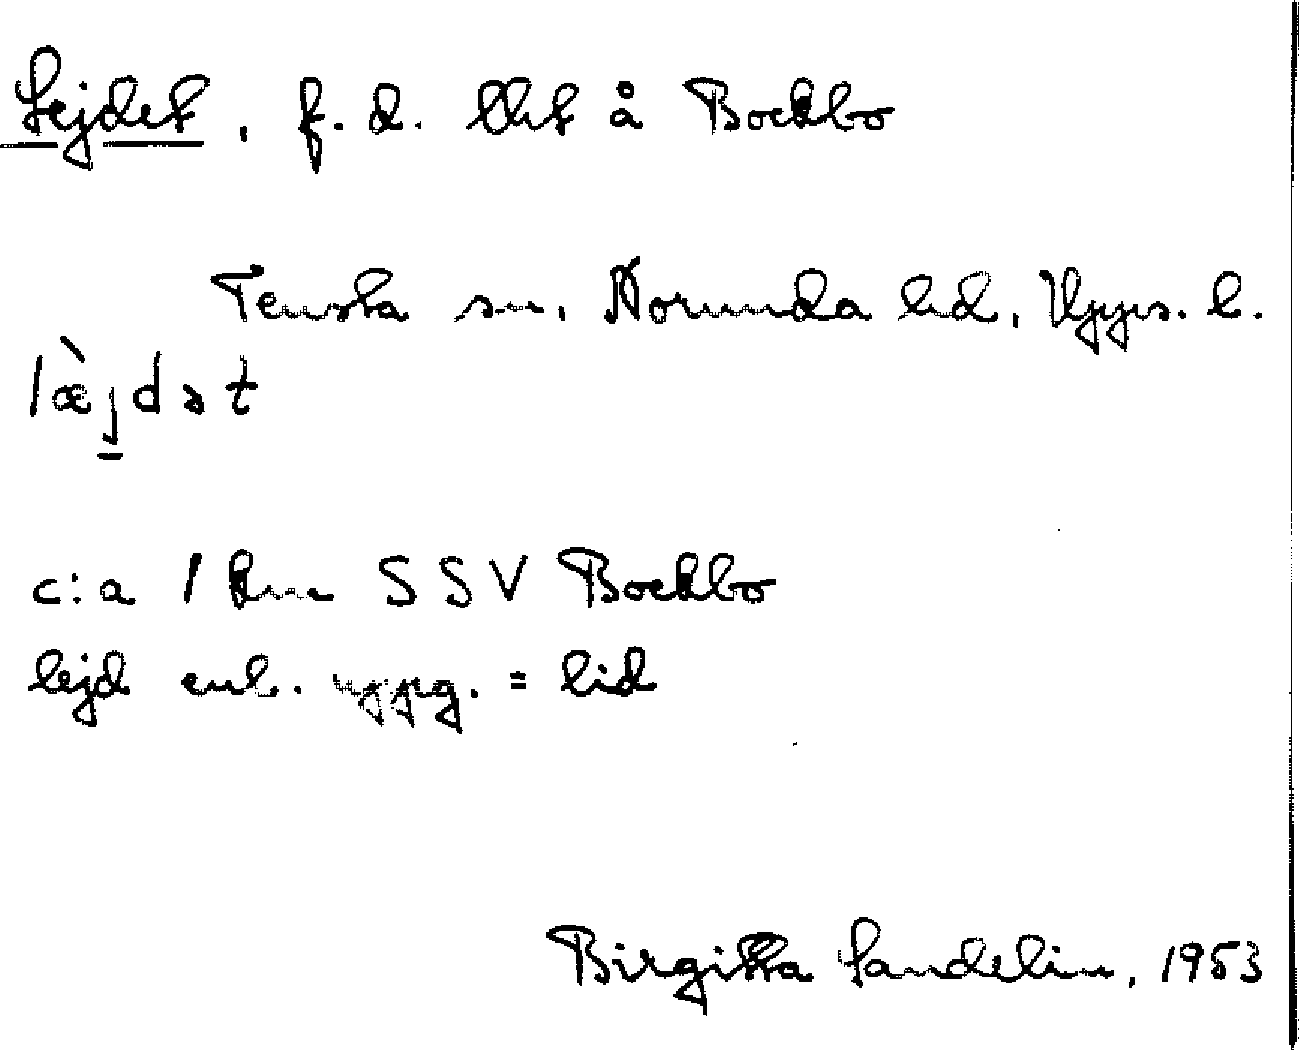 Lejdet, f.d. lht å Bockbo
Tensta sn. Norunda hd, Upps. l.
læ̀jdət
c:a 1 km SSV Bockbo
lejd enl. uppg. = lid
Birgitta Sandelin, 1953